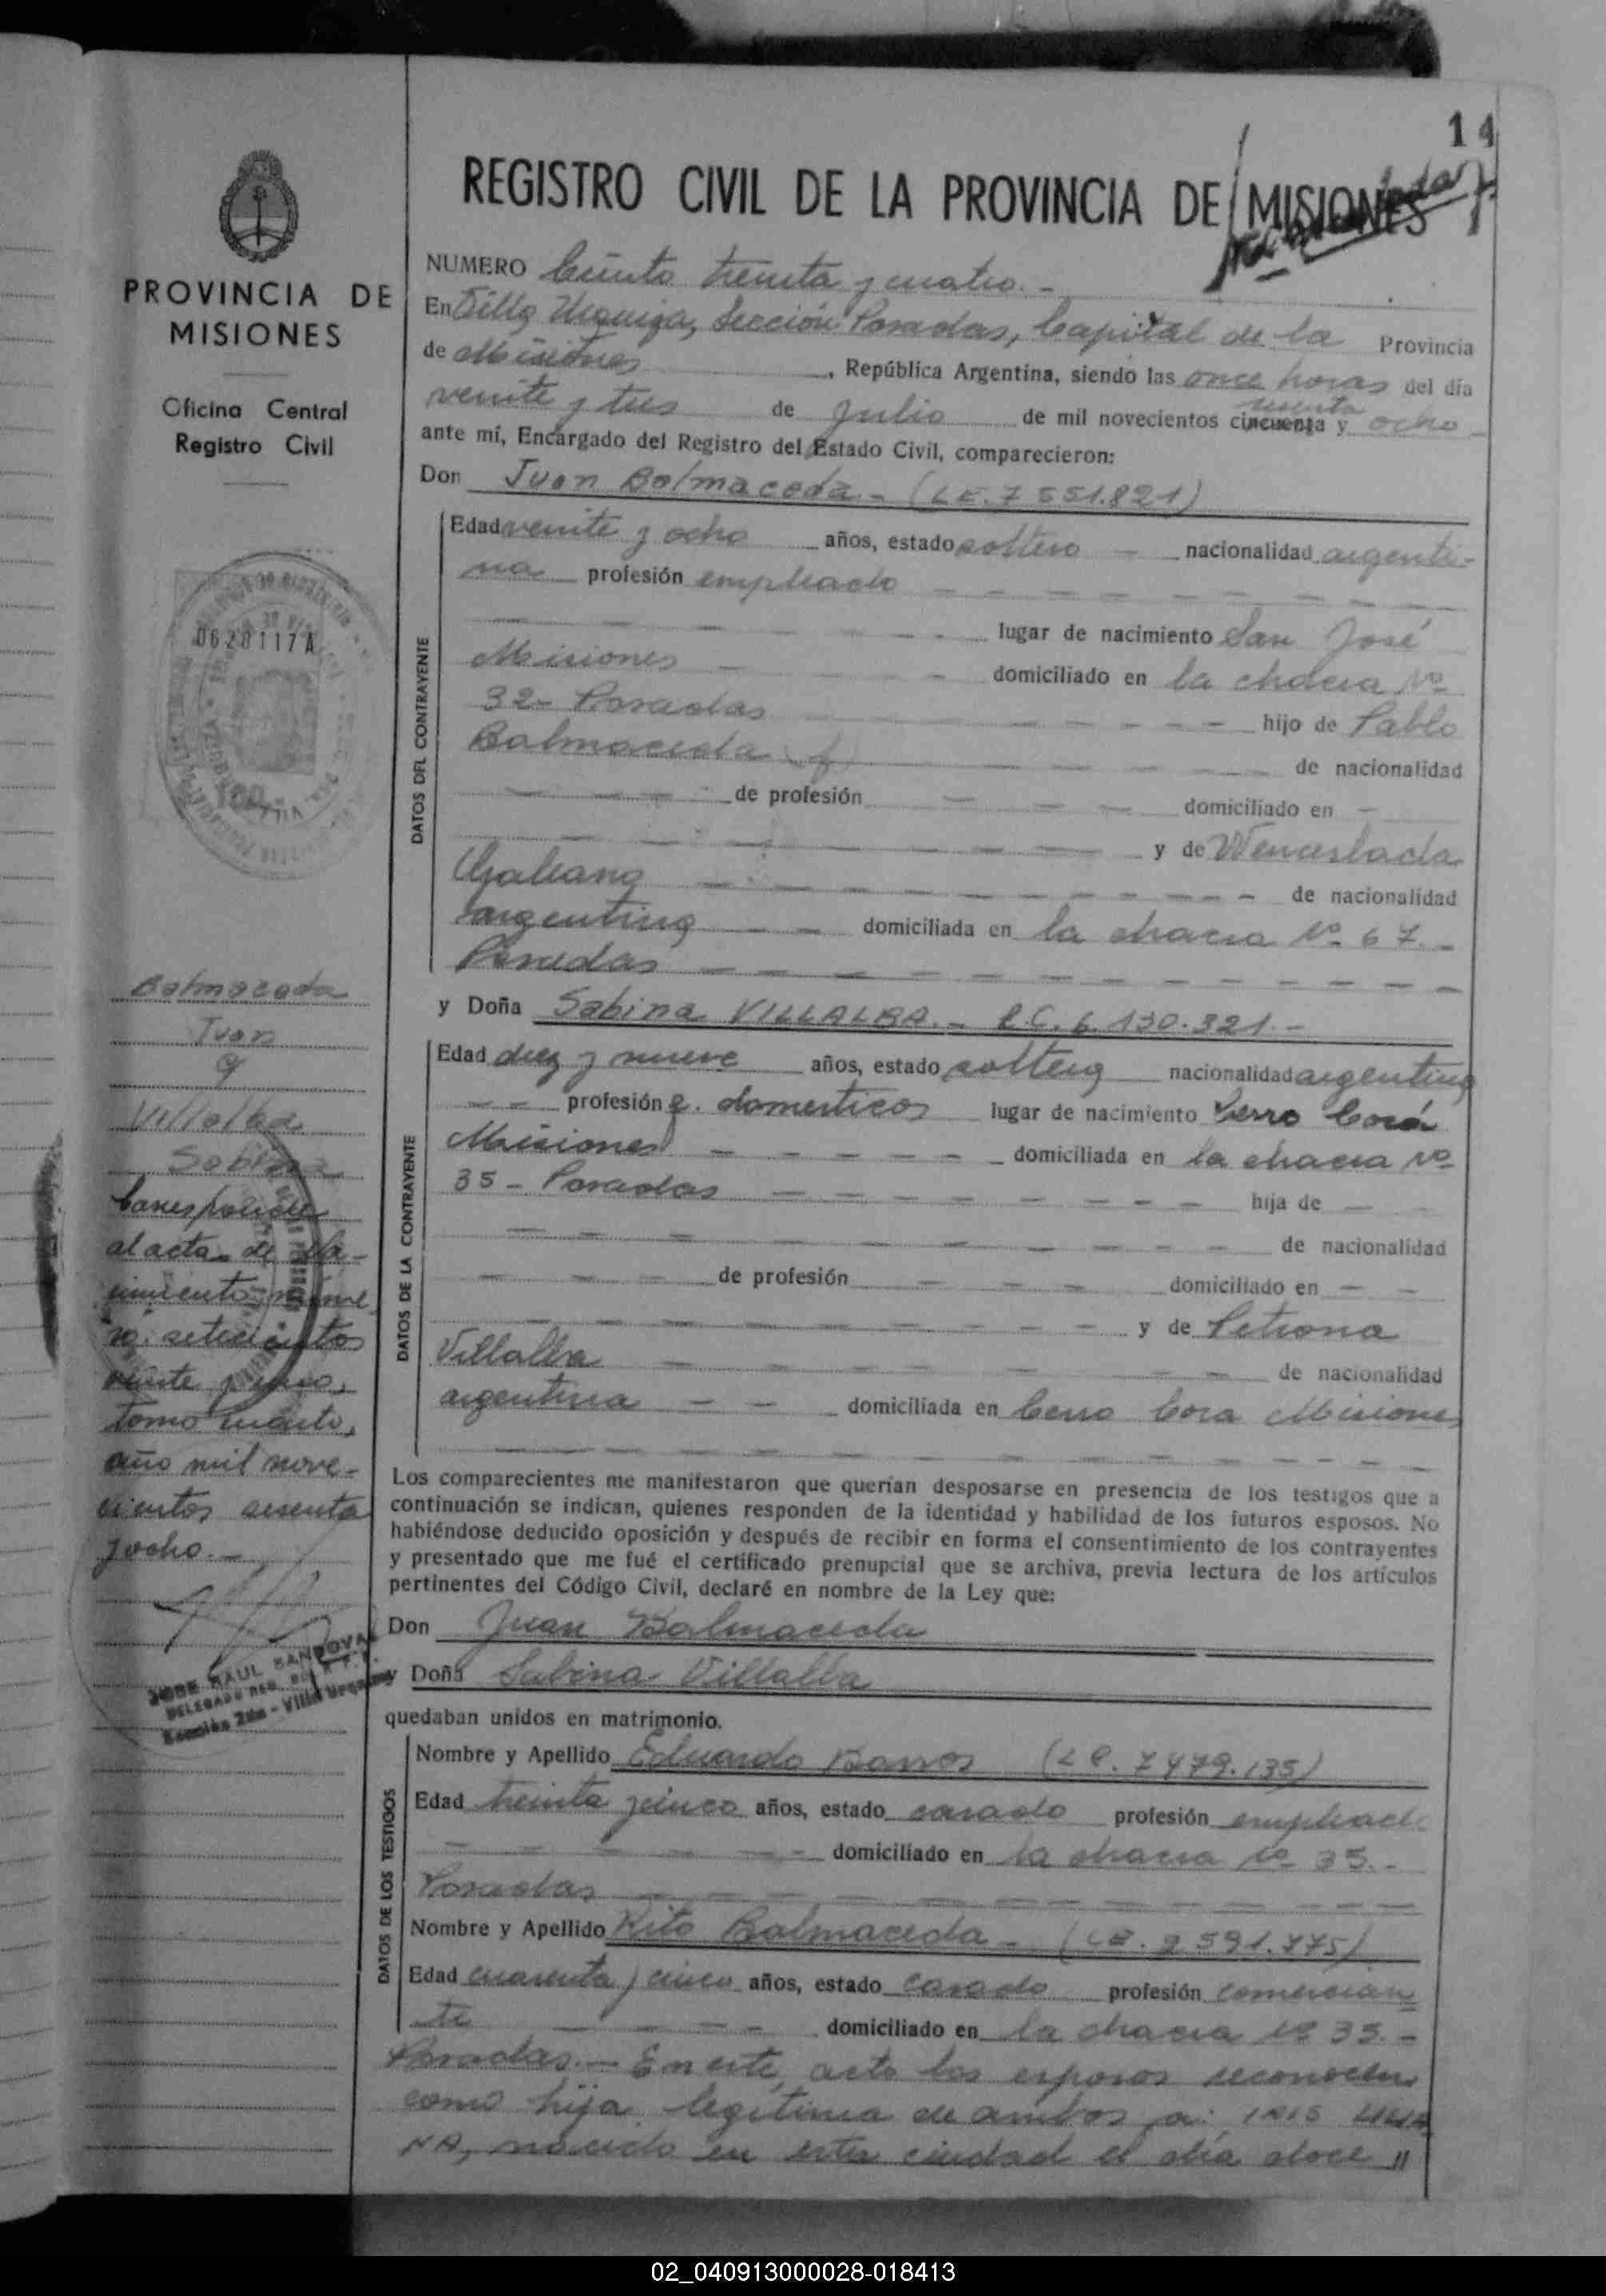 14
REGISTRO CIVIL DE LA PROVINCIA DE MISIONES
PROVINCIA DE
MISIONES
Oficina Central
Registro Civil
0628117A
Balmaceda
Juan
y
Villalba
Sabina
Corresponde
al acta de Na-
cimiento núme
ro: setecientos
veinte y
tomo cuarto,
año mil nove-
cientos sesenta
y ocho.-
JOSE RAUL SANDOVAL
DELEGADO REG.
Sección 2da - Villa Urquiza
NUMERO Ciento treinta y cuatro.-
En Villa Urquiza, Sección Posadas, Capital de la Provincia
de Misiones, República Argentina, siendo las once horas del día
sesenta
veinte y tres de Julio de mil novecientos cincuenta y ocho
ante mí, Encargado del Registro del Estado Civil, comparecieron:
Don Juan Balmaceda.- (LE. 7 551.821)
DATOS DEL CONTRAYENTE
Edad veinte y ocho años, estado soltero - nacionalidad argenti-
na profesión empleado
lugar de nacimiento San José
Misiones domiciliado en la chacra Nº
32- Posadas hijo de Pablo
Balmaceda (f) de nacionalidad
de profesión domiciliado en
y de Wenceslada
Galeano de nacionalidad
argentina domiciliada en la chacra Nº 67.-
Posadas
y Doña Sabina VILLALBA.- L.C. 6.130.321.-
DATOS DE LA CONTRAYENTE
Edad diez y nueve años, estado soltera nacionalidad argentina
profesión q. domesticos lugar de nacimiento Cerro Corá
Misiones domiciliada en la chacra Nº
35 - Posadas hija de
de nacionalidad
de profesión domiciliado en
y de Petrona
Villalba de nacionalidad
argentina domiciliada en Cerro Cora Misiones
Los comparecientes me manifestaron que querían desposarse en presencia de los testigos que a
continuación se indican, quienes responden de la identidad y habilidad de los futuros esposos. No
habiéndose deducido oposición y después de recibir en forma el consentimiento de los contrayentes
y presentado que me fué el certificado prenupcial que se archiva, previa lectura de los artículos
pertinentes del Código Civil, declaré en nombre de la Ley que:
Don Juan Balmaceda
y Doña Sabina Villalba
quedaban unidos en matrimonio.
DATOS DE LOS TESTIGOS
Nombre y Apellido Eduardo Barros (LE. 7 479.135)
Edad treinta y cinco años, estado casado profesión empleado
domiciliado en la chacra Nº 35.-
Posadas
Nombre y Apellido Rito Balmaceda - (LE. 2 591.775)
Edad cuarenta y cinco años, estado casado profesión comercian
te domiciliado en la chacra Nº 35.-
Posadas.- En este acto los esposos reconocen
como hija legítima de ambos a: IRIS LILIA
NA, nacida en esta ciudad el día doce //
02_040913000028-018413